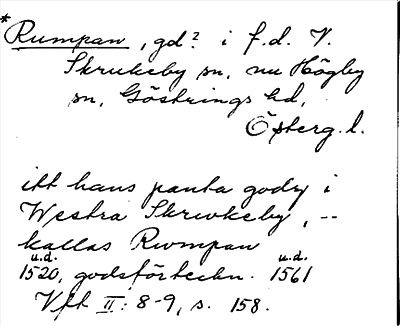 *
Rumpan, gd? i f.d. V.
Skrukeby sn, nu Högby
sn, Göstrings hd,
Österg.l.
itt hans panta godz i
Westra Skrwkeby, --
kallas Rwmpan
u.d. u.d.
1520, godsförteckn. 1561
Vft II: 8-9, s. 158.